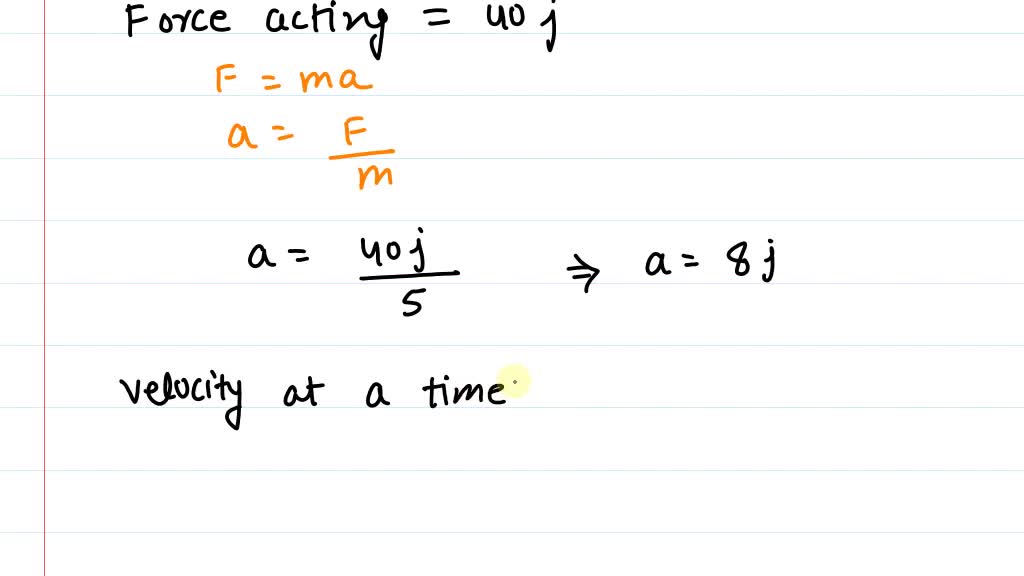 Force acting = 40 j
F = ma
a = F/m
a = 40j/5 ⇒ a = 8j
velocity at a time